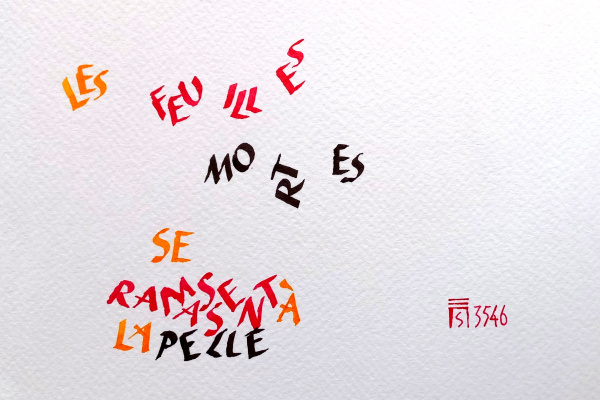 LES FEUILLES
MORTES
SE
RAMASSENT À
LA PELLE
3546